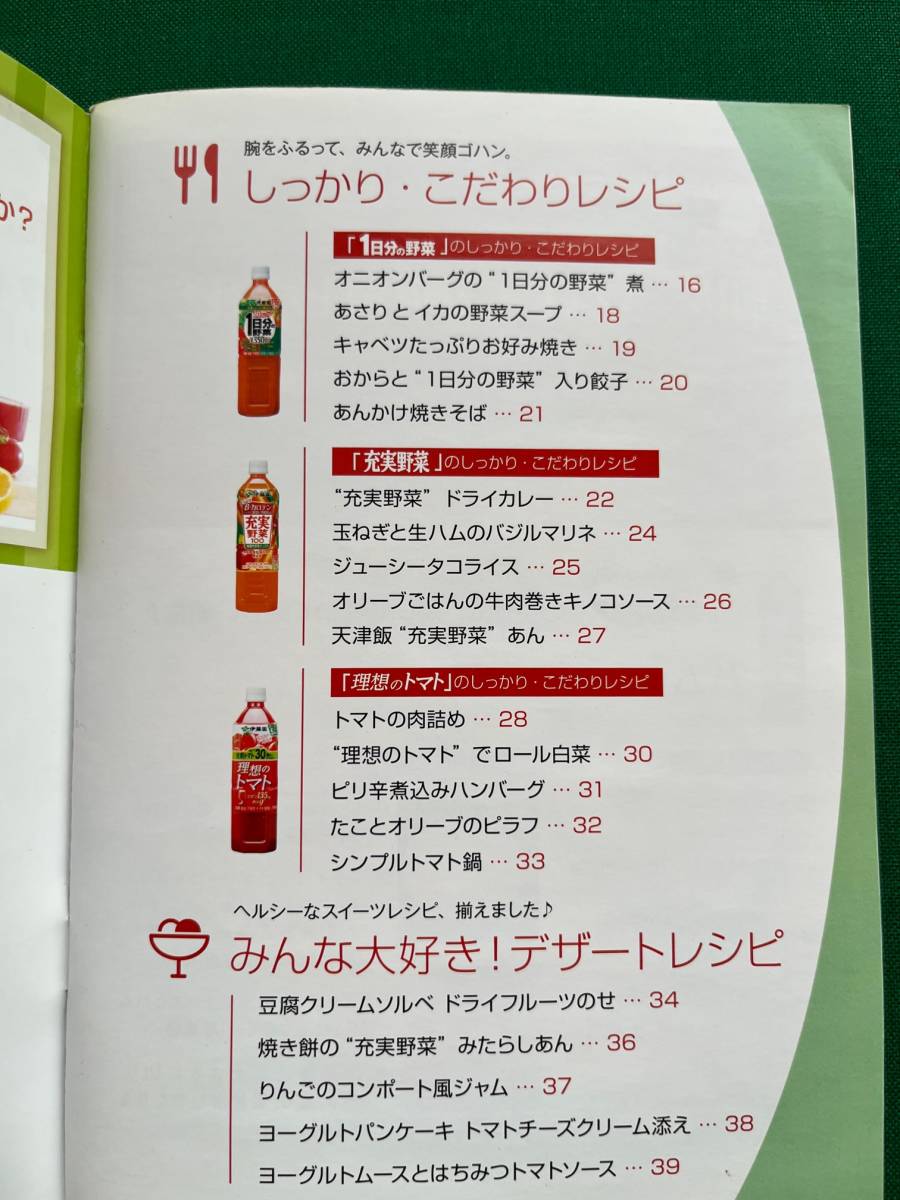 か?
腕をふるって、みんなで笑顔ゴハン。
しっかり・こだわりレシピ
「1日分の野菜」のしっかり・こだわりレシピ
オニオンバーグの“1日分の野菜”煮 … 16
あさりとイカの野菜スープ … 18
キャベツたっぷりお好み焼き … 19
おからと“1日分の野菜”入り餃子 … 20
あんかけ焼きそば … 21
1日分の野菜
「充実野菜」のしっかり・こだわりレシピ
“充実野菜”ドライカレー … 22
玉ねぎと生ハムのバジルマリネ … 24
ジューシータコライス … 25
オリーブごはんの牛肉巻きキノコソース … 26
天津飯“充実野菜”あん … 27
充実野菜
100
「理想のトマト」のしっかり・こだわりレシピ
トマトの肉詰め … 28
“理想のトマト”でロール白菜 … 30
ピリ辛煮込みハンバーグ … 31
たことオリーブのピラフ … 32
シンプルトマト鍋 … 33
伊藤園
理想の
トマト
ヘルシーなスイーツレシピ、揃えました♪
みんな大好き!デザートレシピ
豆腐クリームソルベ ドライフルーツのせ … 34
焼き餅の“充実野菜”みたらしあん … 36
りんごのコンポート風ジャム … 37
ヨーグルトパンケーキ トマトチーズクリーム添え … 38
ヨーグルトムースとはちみつトマトソース … 39